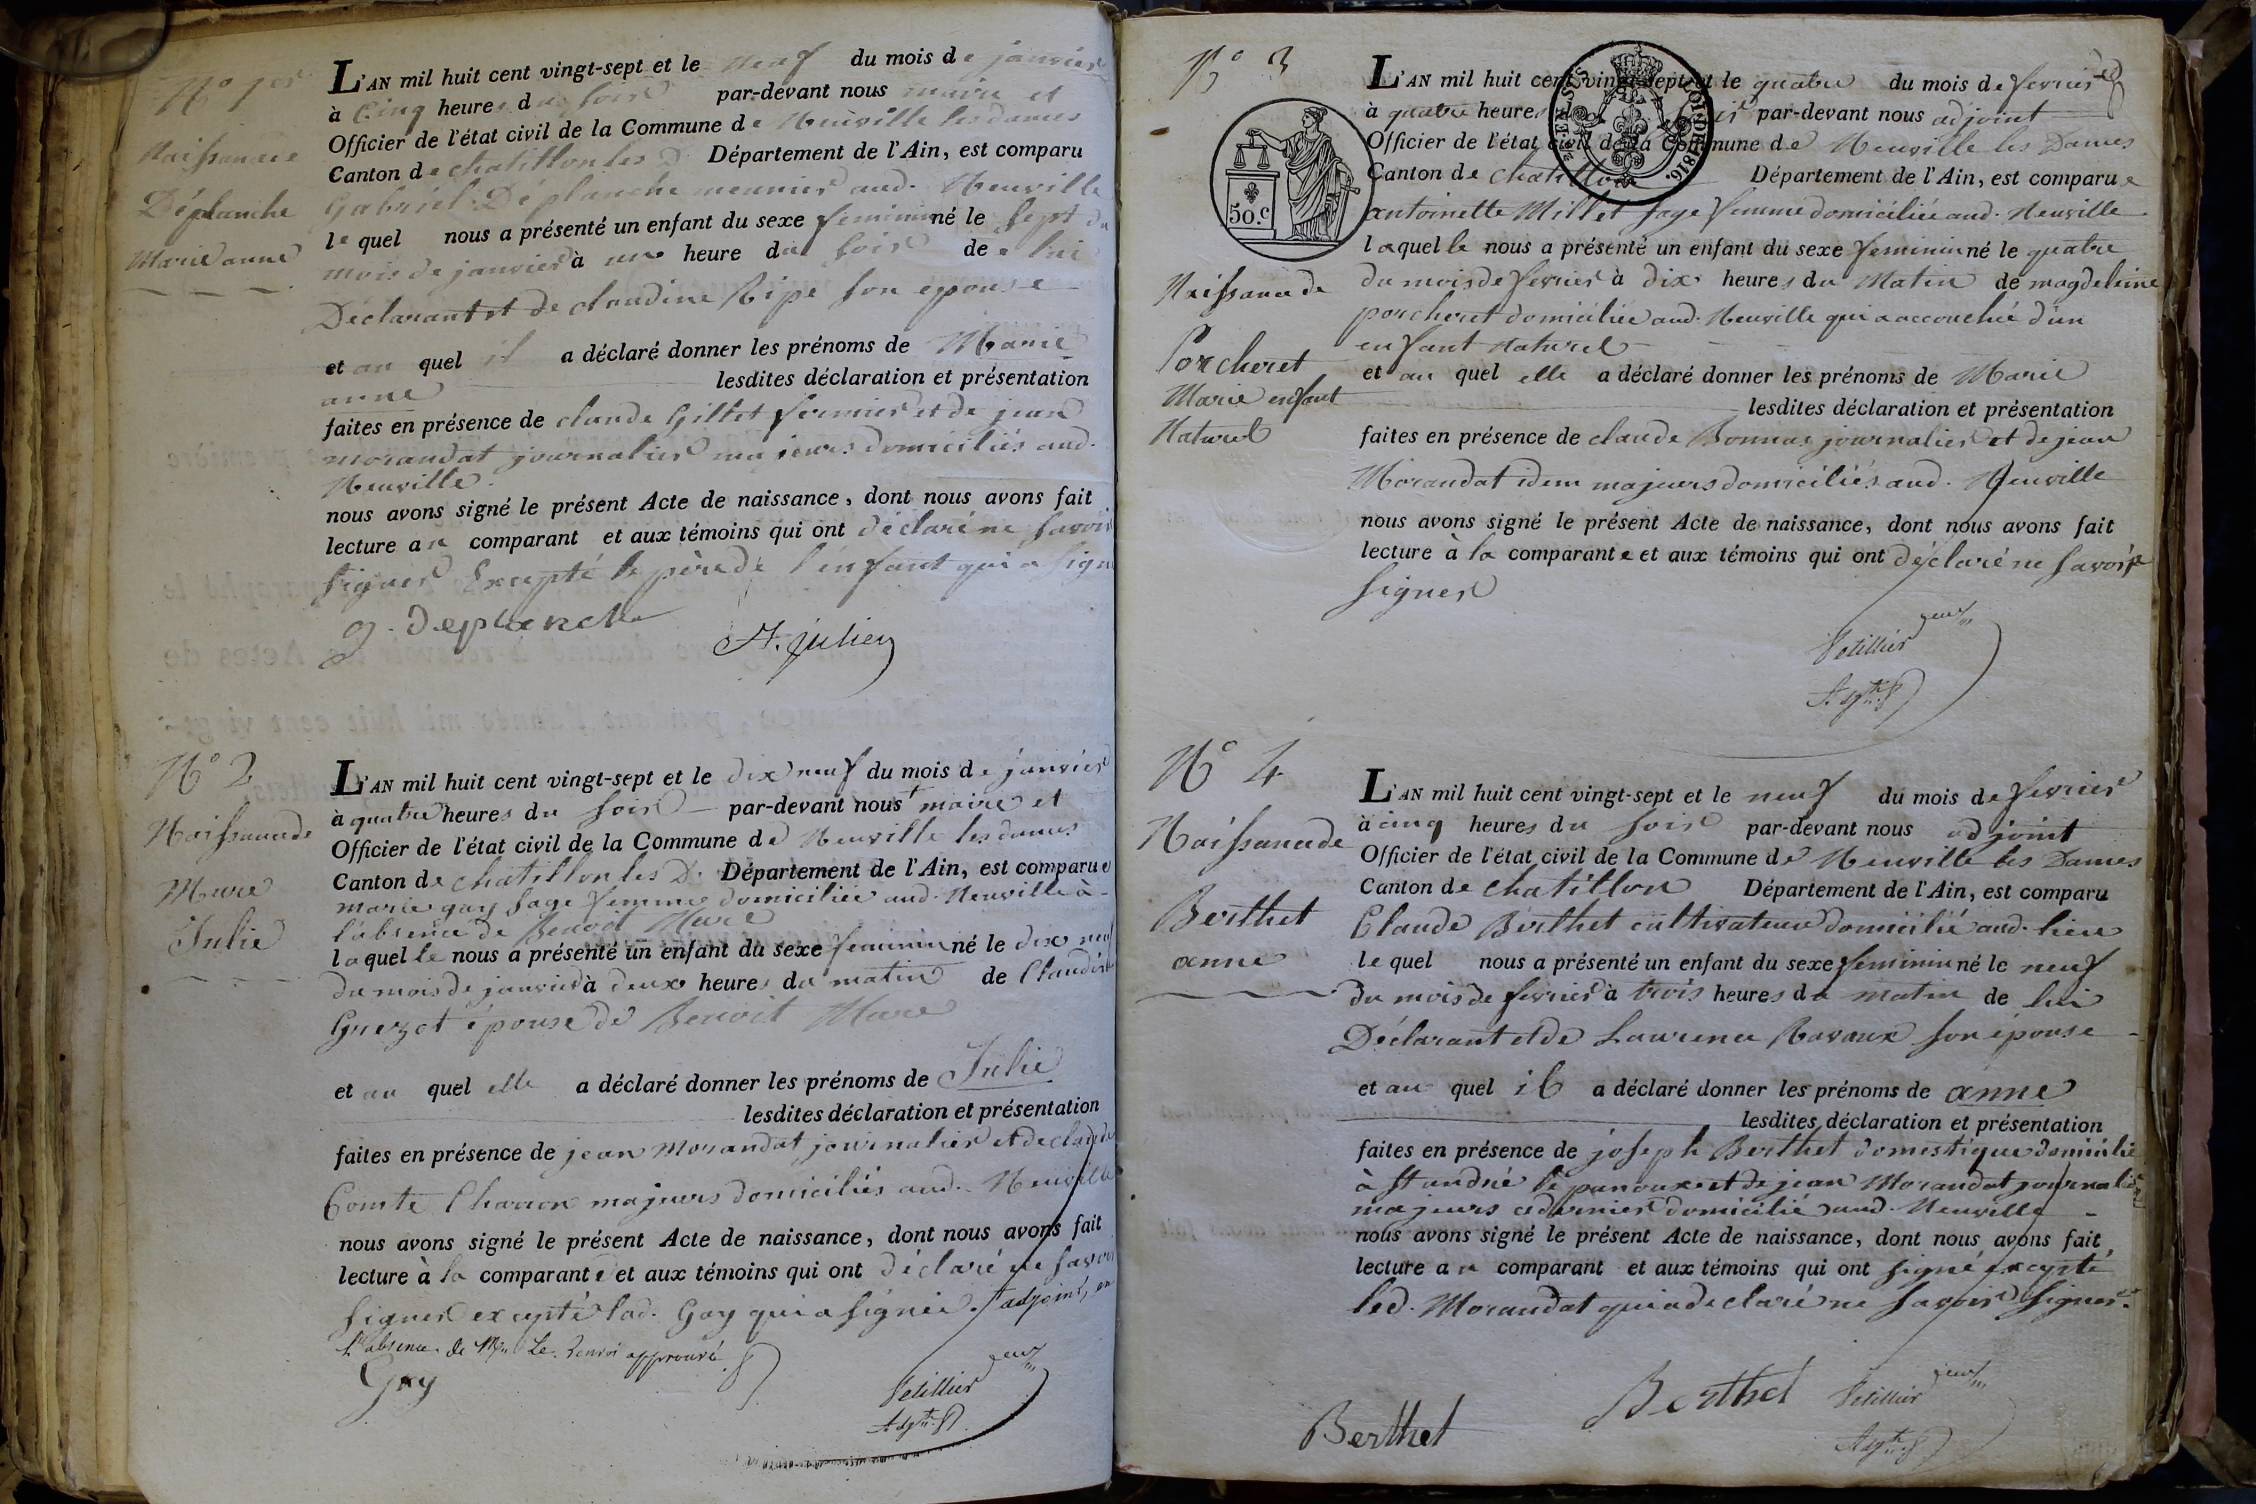 N° 1er
Naissance
Déplanche
Marie anne
L'AN mil huit cent vingt-sept et le neuf du mois de janvier
à Cinq heures du soir par-devant nous maire et
Officier de l'état civil de la Commune de Neuville les dames
Canton de chatillon les D. Département de l'Ain, est comparu
Gabriel Déplanche meunier aud. Neuville
le quel nous a présenté un enfant du sexe feminin né le sept du
mois de janvier à une heure du soir de lui
Déclarant et de claudine Ripe son epouse
et au quel il a déclaré donner les prénoms de Marie
anne lesdites déclaration et présentation
faites en présence de claude Gillet fermier et de jean
morandat journalier majeurs domiciliés aud.
Neuville.
nous avons signé le présent Acte de naissance, dont nous avons fait
lecture au comparant et aux témoins qui ont déclaré ne savoir
signer Excepté le père de l'enfant qui a signé
g. deplanche
St. julien
N° 2
Naissance de
Mure
Julie
L'AN mil huit cent vingt-sept et le dix neuf du mois de janvier
à quatre heures du soir par-devant nous + maire et
Officier de l'état civil de la Commune de Neuville les dames
Canton de chatillon les D. Département de l'Ain, est comparue
marie gay sage femme domiciliée aud. Neuville à
l'absence de Benoit Mure
laquelle nous a présenté un enfant du sexe feminin né le dix neuf
du mois de janvier à deux heures du matin de Claudine
Guezot épouse de Benoit Mure
et au quel elle a déclaré donner les prénoms de Julie
lesdites déclaration et présentation
faites en présence de jean Morandat journalier et de claude
Comte Charron majeurs domiciliés aud. Neuville
nous avons signé le présent Acte de naissance, dont nous avons fait
lecture à la comparante et aux témoins qui ont déclaré ne savoir
signer excepté lad. Gay qui a signée. + adjoint, en
l'absence de Mr. Le renvoi approuvé
Gay
Petillier
Adjt.
N° 3
50.c
Naissance de
Porcheret
Marie enfant
Naturel
L'AN mil huit cent vingt-sept et le quatre du mois de fevrier
à quatre heures du soir par-devant nous adjoint
Officier de l'état civil de la Commune de Neuville les Dames
Canton de Chatillon Département de l'Ain, est comparue
antoinette Millet sage femme domiciliée aud. Neuville
laquelle nous a présenté un enfant du sexe feminin né le quatre
du mois de fevrier à dix heures du Matin de magdeleine
porcheret domiciliée aud. Neuville qui a accouchée d'un
enfant Naturel
et au quel elle a déclaré donner les prénoms de Marie
lesdites déclaration et présentation
faites en présence de claude Bonnat journalier et de jean
Morandat idem majeurs domiciliés aud. Neuville
nous avons signé le présent Acte de naissance, dont nous avons fait
lecture à la comparante et aux témoins qui ont déclaré ne savoir
signer
Petillier
Adjt.
N° 4
Naissance de
Berthet
anne
L'AN mil huit cent vingt-sept et le neuf du mois de fevrier
à cinq heures du soir par-devant nous adjoint
Officier de l'état civil de la Commune de Neuville les Dames
Canton de Chatillon Département de l'Ain, est comparu
Claude Berthet cultivateur domicilié aud. lieu
le quel nous a présenté un enfant du sexe feminin né le neuf
du mois de fevrier à trois heures du matin de lui
Déclarant et de Laurence Ravaux son épouse
et au quel il a déclaré donner les prénoms de anne
lesdites déclaration et présentation
faites en présence de joseph Berthet domestique domicilié
à St andré le panoux et de jean Morandat journalier
majeurs ce dernier domicilié aud. Neuville
nous avons signé le présent Acte de naissance, dont nous avons fait
lecture au comparant et aux témoins qui ont signé excepté
led. Morandat qui a declaré ne savoir signer.
Berthet
Berthet
Petillier
Adjt.